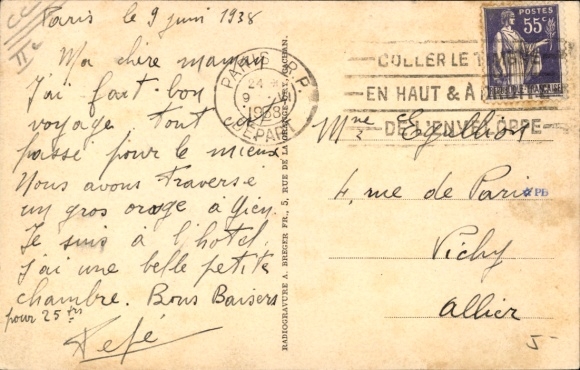 Paris le 9 juin 1938
Ma chère maman
J'ai fait bon
voyage tout est
passé pour le mieux
Nous avons traversé
un gros orage à Gien
Je suis à l'hotel.
J'ai une belle petite
chambre. Bons Baisers
pour 25 frs
RADIOGRAVURE A. BREGER FR., 5, RUE DE LA GRANGE-ORY, CACHAN.
PARIS R.P.
24
9
1938
DEPART
COLLER LE TIMBRE
EN HAUT & À DROITE
DE L'ENVELOPPE
POSTES
55c
Mme
4, rue de Paris
Vichy
Allier
PB
5-